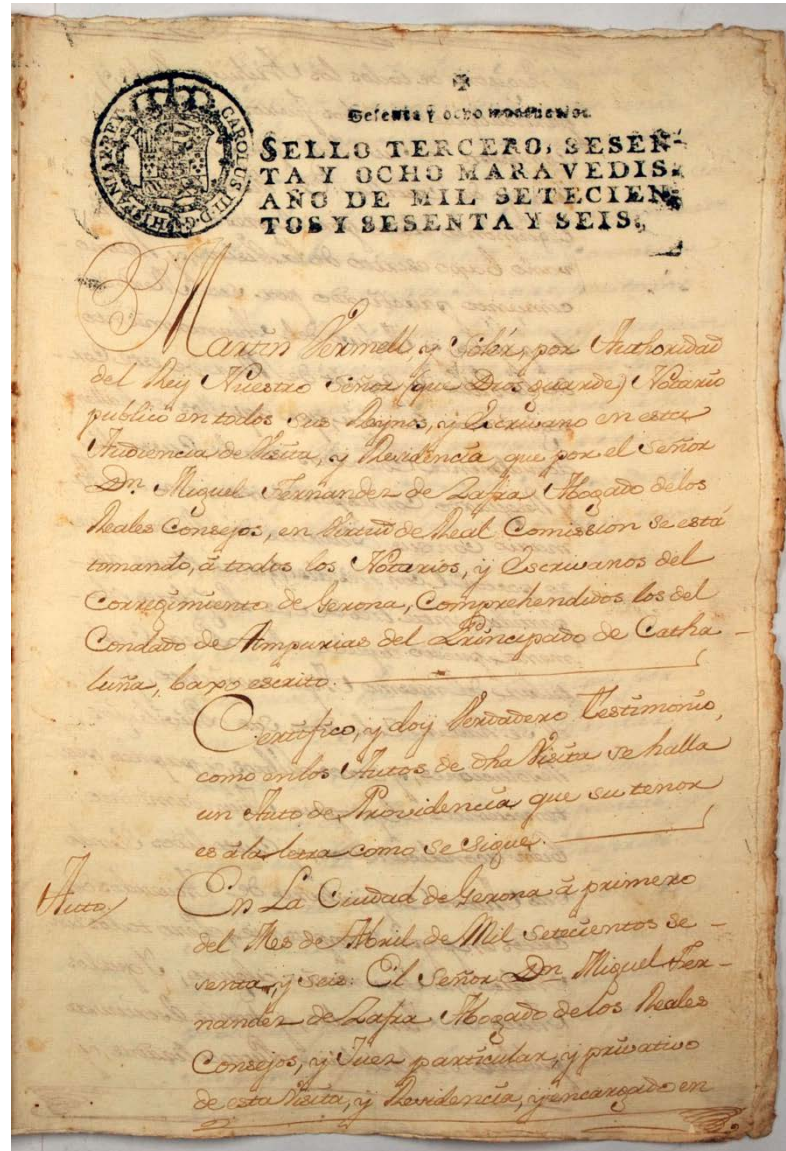 CAROLUS III. D. G. HISPANIAR. REX
Sesenta y ocho maravedis.
SELLO TERCERO, SESEN-
TA Y OCHO MARAVEDIS,
AÑO DE MIL SETECIEN-
TOS Y SESENTA Y SEIS.
Martin Vermell, y Solér, por Authoridad
del Rey Nuestro Señor (que Dios guarde) Notario
publico en todos sus Reynos, y Escrivano en esta
Audiencia de Visita, y Residencia que por el Señor
Dn. Miguel Fernandez de Zafra Abogado delos
Reales Consejos, en Virtud de Real Comission se está
tomando, á todos los Notarios, y Escrivanos del
Corregimiento de Gerona, Comprehendidos los del
Condado de Ampurias del Principado de Catha-
luña, baxo escrito.
Certifico, y doy Verdadero Testimonio,
como enlos Autos de dha Visita se halla
un Auto de Providencia que su tenor
es ála letra como se sigue.
Auto/
En La Ciudad de Gerona á primero
del Mes de Abril de Mil setecientos se-
senta, y seis: El Señor Dn. Miguel Fer-
nandez de Zafra Abogado delos Reales
Consejos, y Juez particular, y privativo
de esta Visita, y Residencia, y encargado en